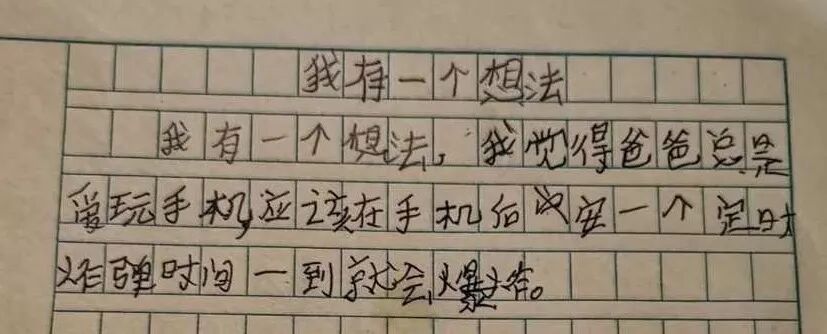 我有一个想法
我有一个想法，我觉得爸爸总是
爱玩手机，应该在手机后安一个定时
炸弹时间一到就会爆炸。